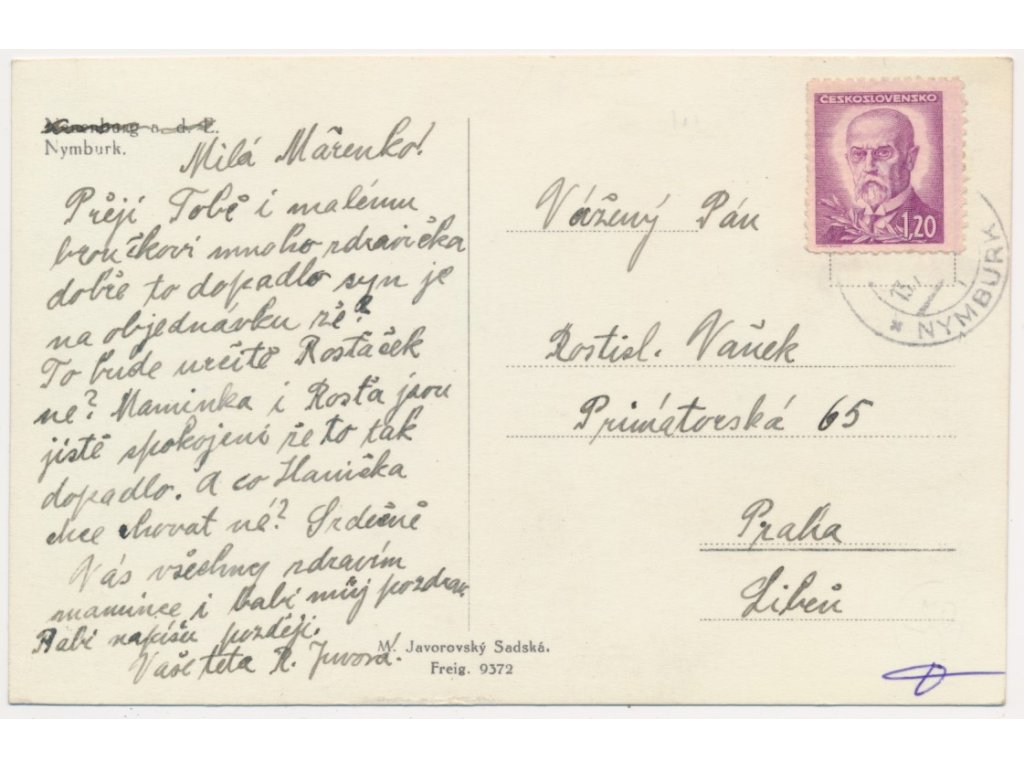 Nymburk.
Milá Mařenko!
Přeji Tobě i malému
broučkovi mnoho zdravíčka
dobře to dopadlo syn je
na objednávku že?
To bude určitě Rosťáček
ne? Maminka i Rosťa jsou
jistě spokojeni že to tak
dopadlo. A co Hanička
chce chovat né? Srdečně
Vás všechny zdravím
mamince i babi můj pozdrav
Babi napíšu později.
Vaše teta R.
M. Javorovský Sadská.
Freig. 9372
ČESKOSLOVENSKO
1,20
NYMBURK
13.
Vážený Pán
Rostisl. Vaněk
Primátorská 65
Praha
Libeň